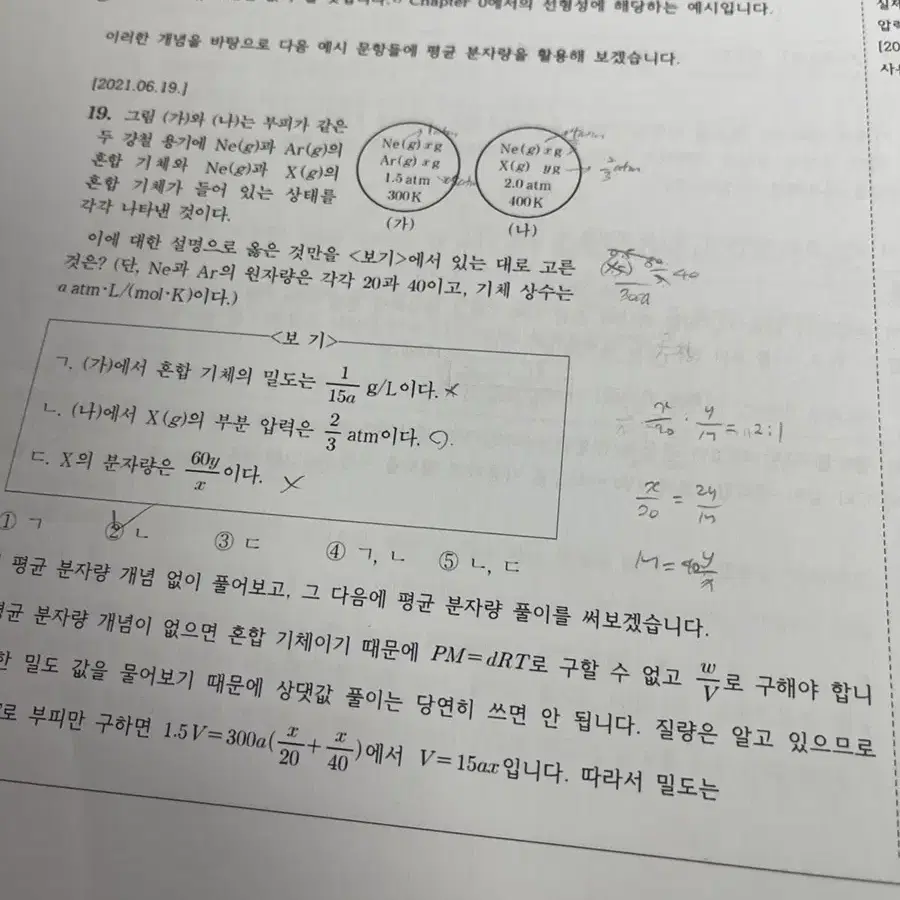 Chapter 0에서의 선형성에 해당하는 예시입니다.
이러한 개념을 바탕으로 다음 예시 문항들에 평균 분자량을 활용해 보겠습니다.
[2021.06.19.]
19. 그림 (가)와 (나)는 부피가 같은
두 강철 용기에 Ne(g)과 Ar(g)의
혼합 기체와 Ne(g)과 X(g)의
혼합 기체가 들어 있는 상태를
각각 나타낸 것이다.
Ne(g) x g
Ar(g) x g
1.5 atm
300 K
(가)
Ne(g) x g
X(g) y g
2.0 atm
400 K
(나)
2/3 atm
이에 대한 설명으로 옳은 것만을 <보기>에서 있는 대로 고른
것은? (단, Ne과 Ar의 원자량은 각각 20과 40이고, 기체 상수는
a atm·L/(mol·K)이다.)
300a
<보 기>
ㄱ. (가)에서 혼합 기체의 밀도는 1/15a g/L이다. ×
ㄴ. (나)에서 X(g)의 부분 압력은 2/3 atm이다. ○
ㄷ. X의 분자량은 60y/x이다. ×
x/20 : y/M = 2:1
x/20 = 2y/M
M = 40 y/x
① ㄱ ② ㄴ ③ ㄷ ④ ㄱ, ㄴ ⑤ ㄴ, ㄷ
평균 분자량 개념 없이 풀어보고, 그 다음에 평균 분자량 풀이를 써보겠습니다.
평균 분자량 개념이 없으면 혼합 기체이기 때문에 PM=dRT로 구할 수 없고 w/V로 구해야 합니
한 밀도 값을 물어보기 때문에 상댓값 풀이는 당연히 쓰면 안 됩니다. 질량은 알고 있으므로
로 부피만 구하면 1.5V=300a(x/20+x/40)에서 V=15ax입니다. 따라서 밀도는
실제
압력
[20
사용